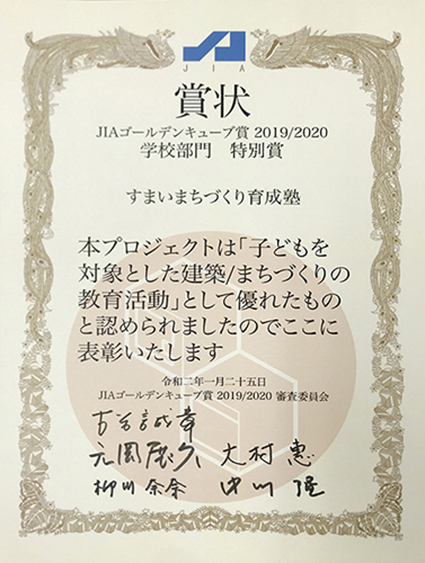 JIA
賞状
JIAゴールデンキューブ賞 2019/2020
学校部門 特別賞
すまいまちづくり育成塾
本プロジェクトは「子どもを
対象とした建築/まちづくりの
教育活動」として優れたもの
と認められましたのでここに
表彰いたします
令和二年一月二十五日
JIAゴールデンキューブ賞 2019/2020 審査委員会
大村 惠
柳川 奈奈